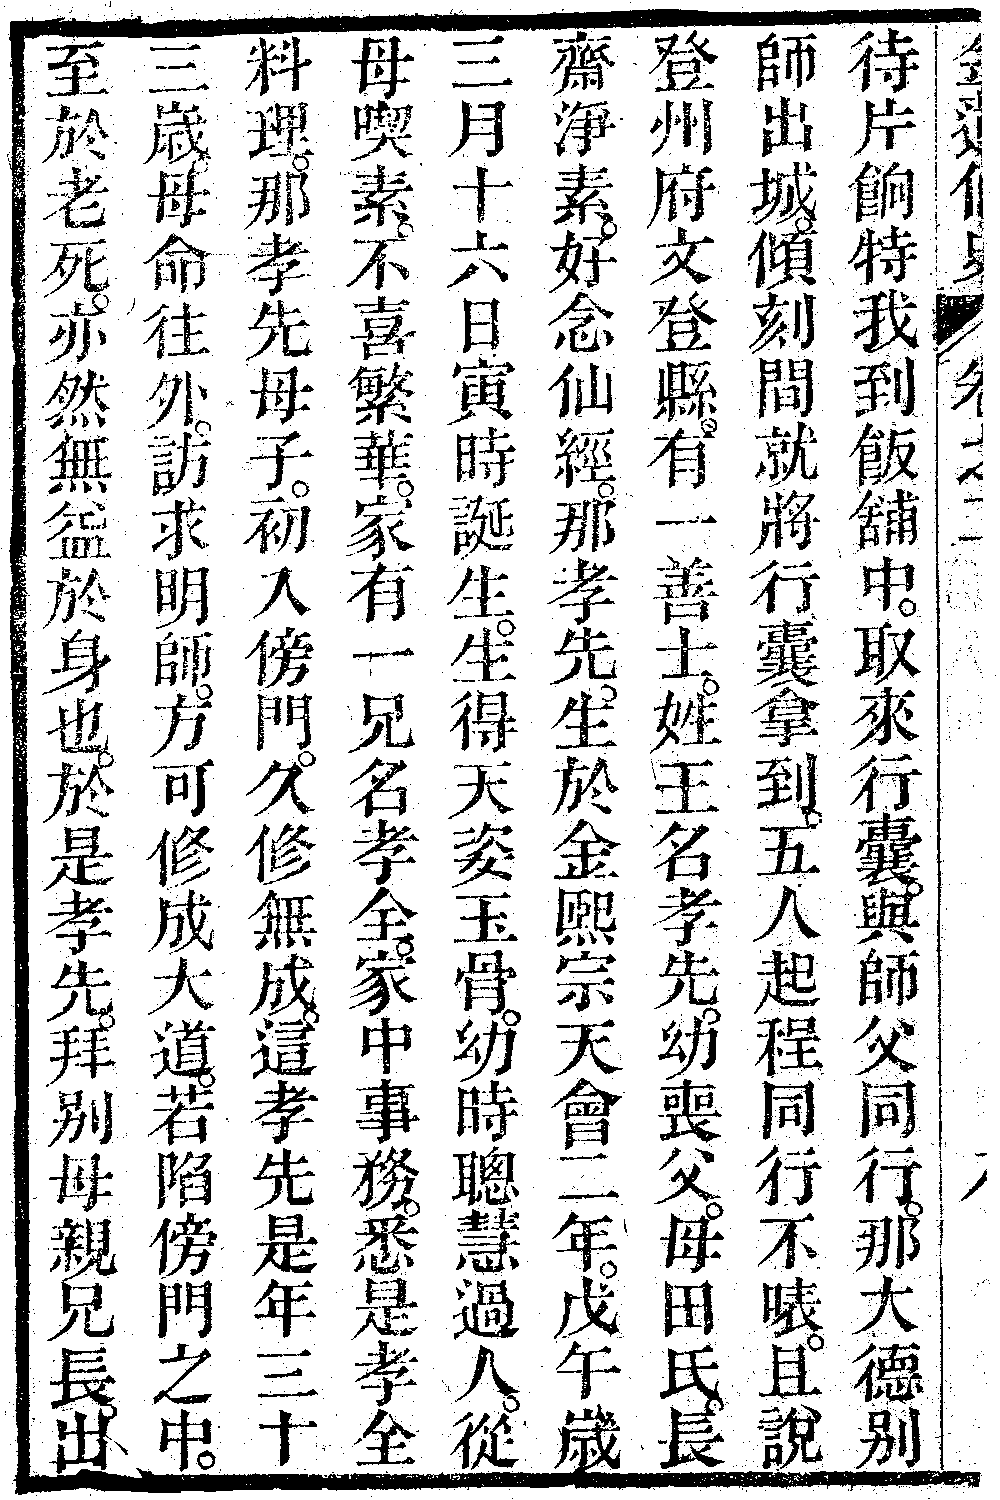 待片餉特我到飯舖中。取來行囊。與師父同行。那大德别
師出城。傾刻間就將行囊拿到。五人起程同行不𠵽。且說
登州府文登縣。有一善士。姓王名孝先。幼喪父。母田氏。長
齋淨素。好念仙經。那孝先。生於金熙宗天會二年。戊午歲
三月十六日寅時誕生。生得天姿玉骨。幼時聰慧過人。從
母喫素。不喜繁華。家有一兄名孝全。家中事務。悉是孝全
料理。那孝先母子。初入傍門。久修無成。這孝先是年三十
三歲。母命往外。訪求明師。方可修成大道。若陷傍門之中。
至於老死。亦然無益於身也。於是孝先。拜别母親兄長。出